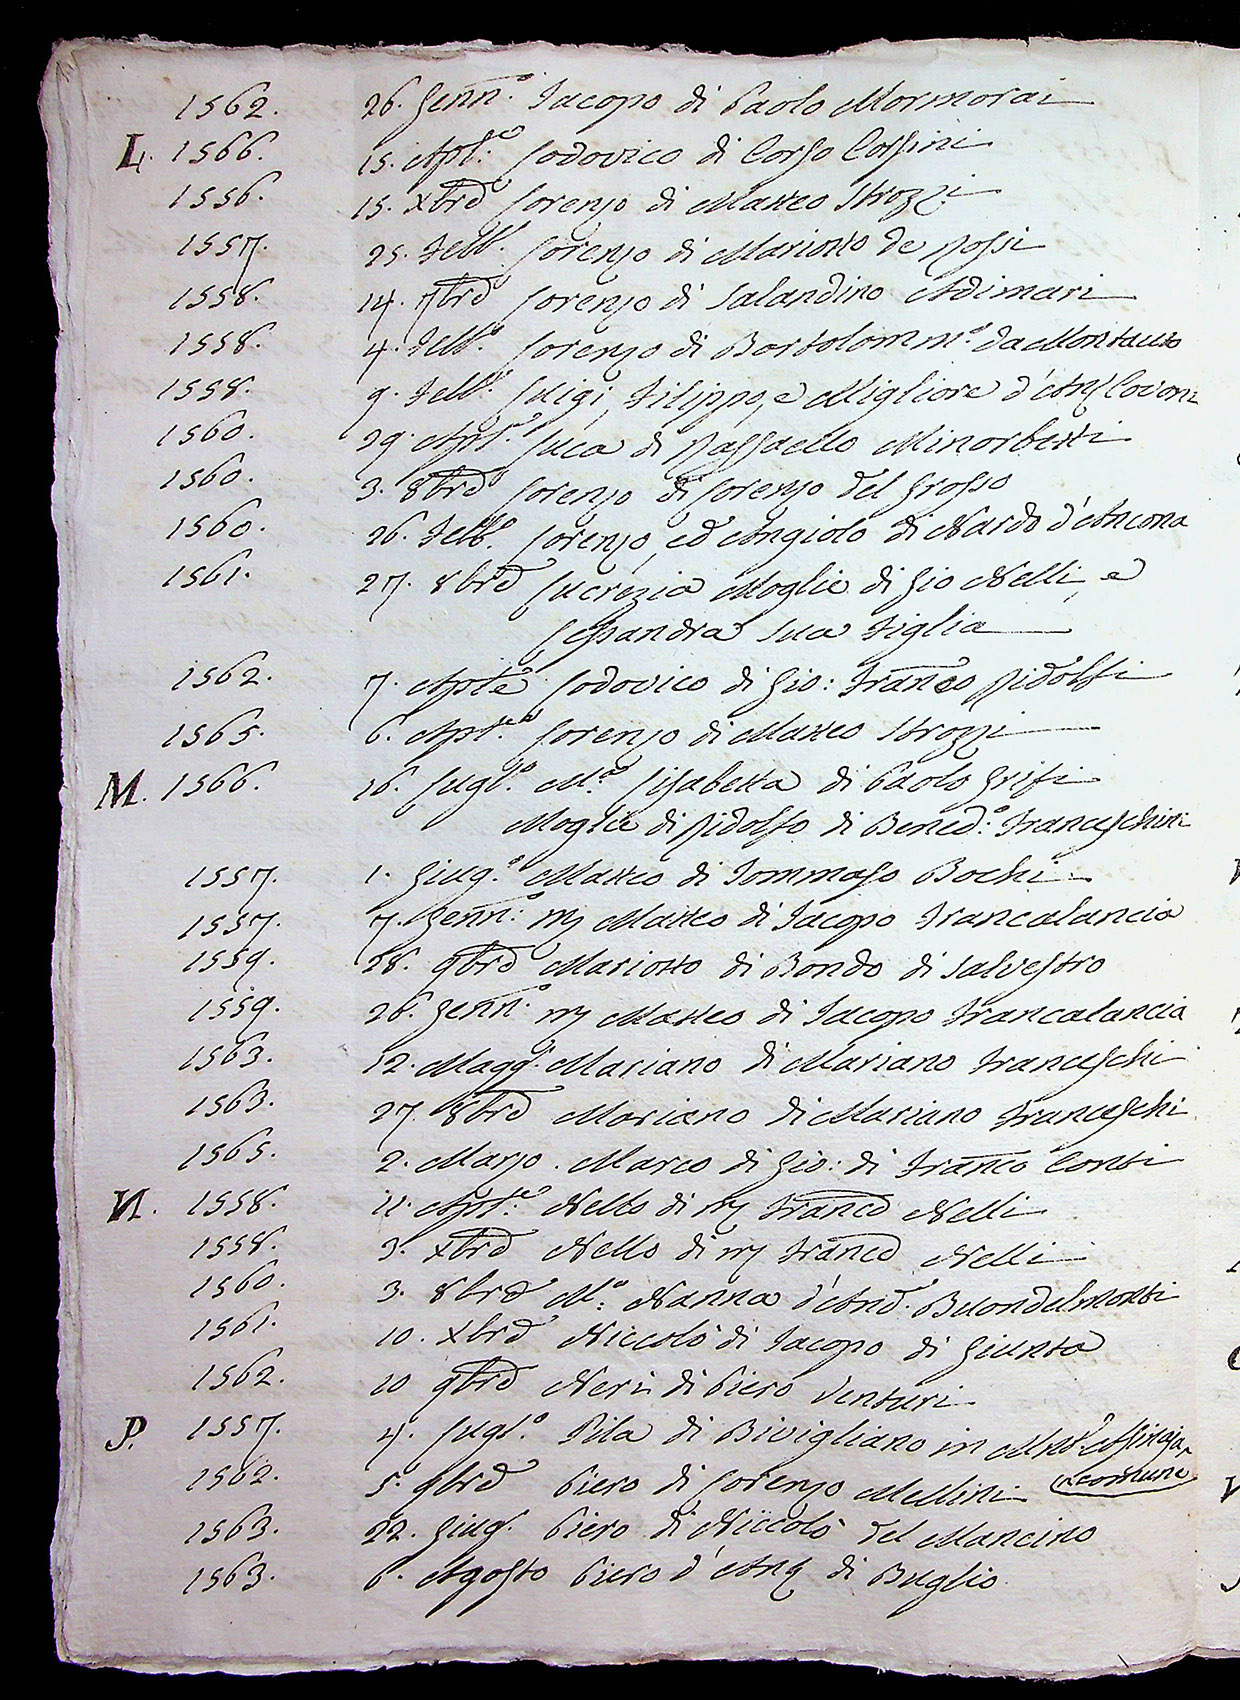 1562. 26. Genn.º Jacopo di Paolo Mormorai
L. 1566. 15. Aple. Lodovico di Corso Corsini
1556. 15. Xbre Lorenzo di Matteo Strozzi
1557. 25. Febb. Lorenzo di Mariotto de Rossi
1558. 14. 7bre Lorenzo di Salandino Adimari
1558. 4. Febb.º Lorenzo di Bartolomm.º da Montauto
1558. 9. Febb. Luigi, Filippo, e Migliore d'Anº Covoni
1560. 29. Aple. Luca di Raffaello Minorbetti
1560. 3. 8bre Lorenzo di Lorenzo del Grosso
1560. 26. Febb.º Lorenzo, ed Angiolo di Nardo d'Ancona
1561. 27. 8bre Lucrezia Moglie di Gio Nelli, e
Lessandra sua Figlia
1562. 7. Aple Lodovico di Gio: Franco Ridolfi
1565. 6. Aple. Lorenzo di Matteo Strozzi
M. 1566. 16. Lugl.º M.ª Lisabetta di Paolo Grifi
Moglie di Ridolfo di Bened.º Franceschini
1557. 1. Giug.º Matteo di Tommaso Bochi
1557. 7. Genn.º mº Matteo di Jacopo Francalancia
1559. 28. 9bre Mariotto di Bondo di Salvestro
1559. 26. Genn.º mº Matteo di Jacopo Francalancia
1563. 12. Magg. Mariano di Mariano Franceschi
1563. 27. 8bre Mariano di Mariano Franceschi
1565. 2. Marzo. Marco di Gio: di Franco Conti
N. 1558. 11. Aple: Nello di mº Franco Nelli
1558. 3. Xbre Nello di mº Franco Nelli
1560. 3. 8bre M.ª Nanna d'And. Buondelmonti
1561. 10. Xbre Niccolò di Jacopo di Giunta
1562. 10 9bre Neri di Piero Venturi
P. 1557. 4. Lugl.º Pila di Bivigliano in
comune
1562. 5. 9bre Piero di Lorenzo Mellini
1563. 22. Giug. Piero di Niccolò del Mancino
1563. 6. Agosto Piero d'Anº di Buglio